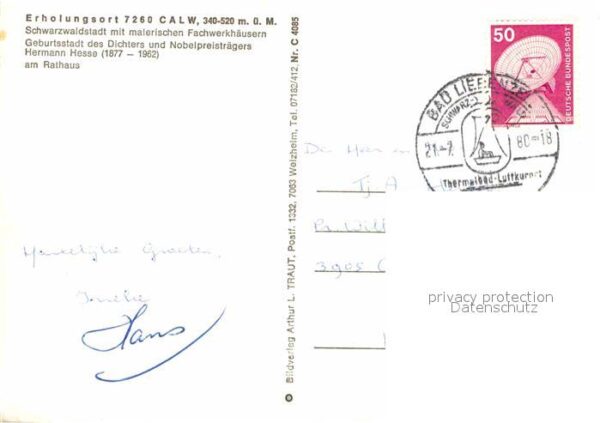 Erholungsort 7260 CALW, 340-520 m. ü. M.
Schwarzwaldstadt mit malerischen Fachwerkhäusern
Geburtsstadt des Dichters und Nobelpreisträgers
Hermann Hesse (1877 – 1962)
am Rathaus
Hartelijke Groeten,
Ineke
Hans
Bildverlag Arthur L. TRAUT, Postf. 1332, 7063 Welzheim, Tel. 07182/412 Nr. C 4085
50
DEUTSCHE BUNDESPOST
BAD LIEBENZELL
21.-7. 80-18
Thermalbad-Luftkurort
De Heer en
Tj A
Pr. Will
3905
privacy protection
Datenschutz